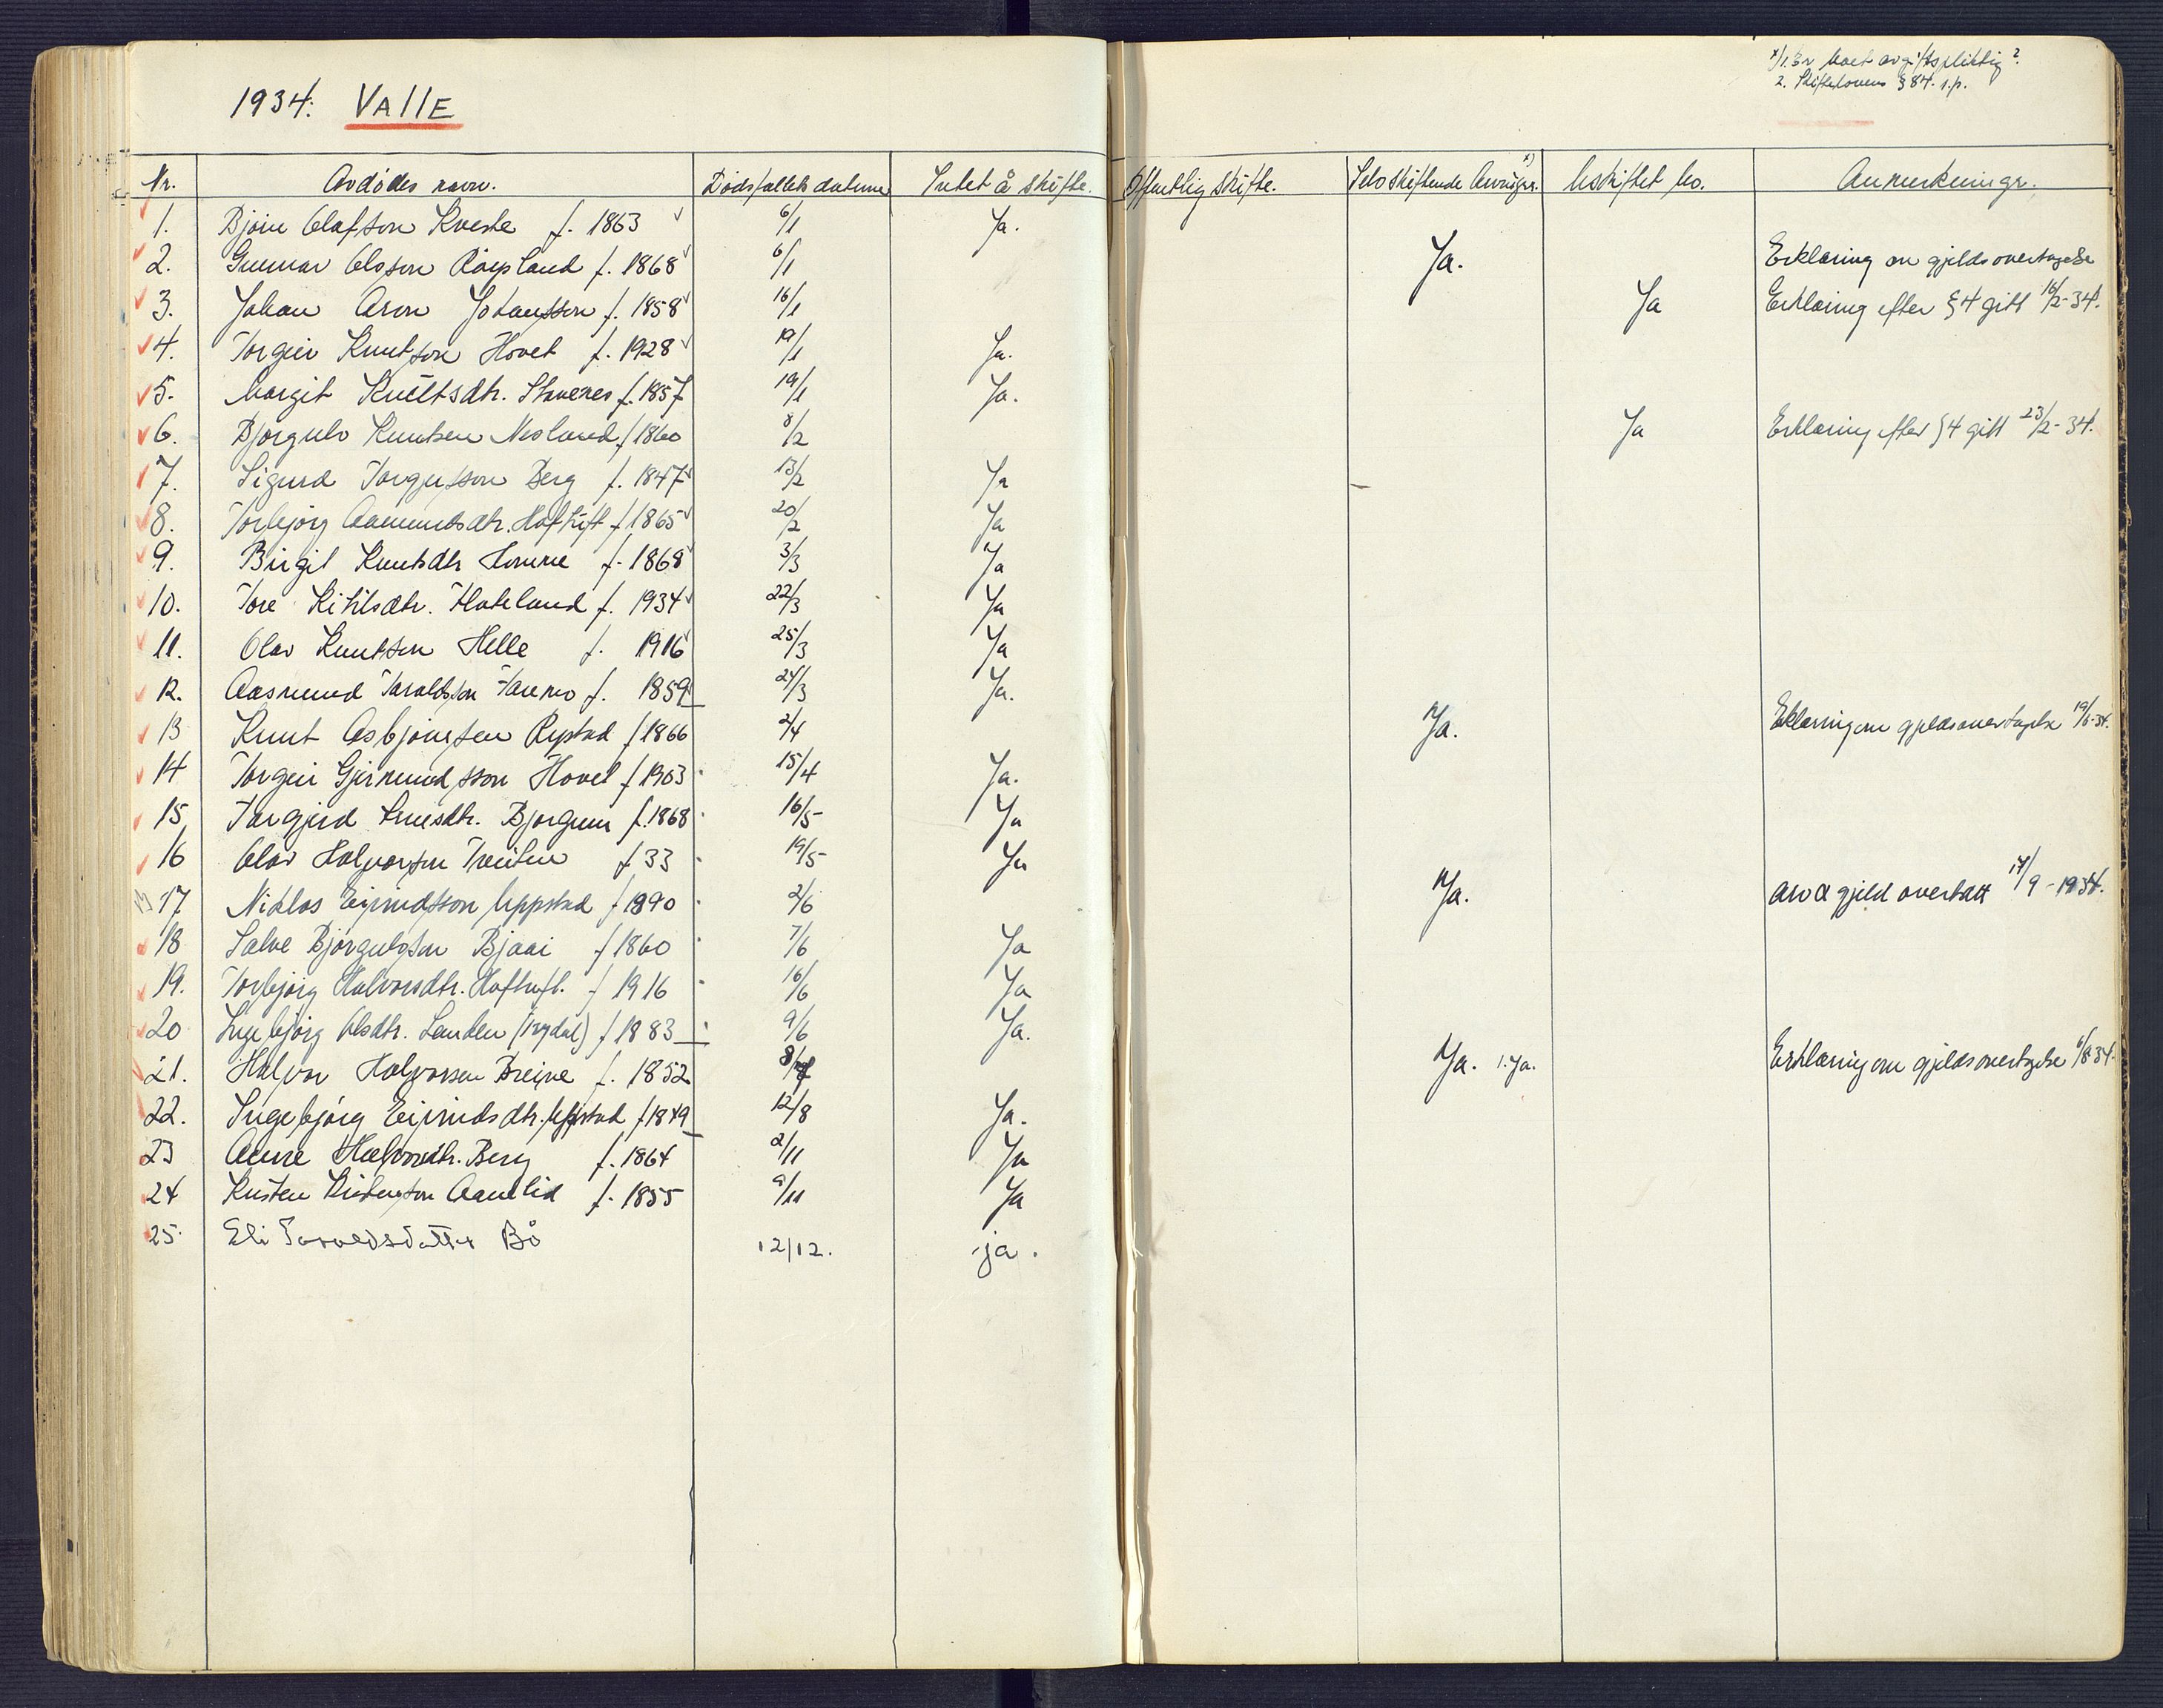 1934: VALLE
x/1. Er boet avgiftspliktig?
2. Skiftelovens § 84. 1.p.
Nr. Avdødes navn. Dødsfallets datum Intet å skifte. Offentlig skifte. Selvskiftende Arvinger. x) Uskiftet bo. Anmerkninger.
1. Bjørn Olafson Kveste f. 1863 6/1 Ja.
2. Gunnar Olsson Røysland f. 1868 6/1 Ja. Erklæring om gjeldsovertagelse
3. Johan Aron Johansson f. 1858 16/1 Ja Erklæring efter § 4 gitt 16/2-34.
4. Torgeir Knutson Hovet f. 1928 19/1 Ja.
5. Margit Knutsdtr. Stavenes f. 1857 19/1 Ja.
6. Bjørgulv Knutsen Nesland f 1860 8/2 Ja Erklæring efter § 4 gitt 23/2-34.
7. Sigurd Torgusson Berg f. 1847 13/2 Ja
8. Torbjørg Aamundsdtr. Hoftuft f 1865 20/2 Ja
9. Birgit Knutsdtr Homme f. 1868 3/3 Ja
10. Tore Kitilsdtr. Flateland f. 1934 22/3 Ja
11. Olav Knutson Helle f. 1916 25/3 Ja
12. Aasmund Taraldson Fareno f. 1859 24/3 Ja.
13 Knut Asbjørnsen Rystad f 1866 2/4 Ja. Erklæring om gjeldsovertagelse 19/6-34.
14 Torgeir Gjermundsson Hovet f 1903 15/4 Ja.
15 Targjerd dtr. Bjørgum f. 1868 16/5 Ja
16 Olav Halvorson Treiten f 33 19/5 Ja
17 Niklos Eivindsson Uppstad f 1890 2/6 Ja. Arv & gjeld overtatt 14/9-1934.
18 Salve Bjørgulvson Bjaai f 1860 7/6 Ja
19. Torbjørg Halvorsdtr. Hoftuft. f 1916 16/6 Ja
20 Ingebjørg Olsdtr. Landen (Rydal) f 1883 9/6 Ja.
21. Halvor Halvorsen Breive f. 1852 8/7 Ja. 1. Ja. Erklæring om gjeldsovertagelse 6/8-34.
22. Ingebjørg Eivindsdtr. Uppstad f 1849 12/8 Ja.
23 Anne Halvorsdtr. Berg f. 1864 2/11 Ja
24 Kristen Kristenson Aamlid f. 1855 9/11 Ja
25. Eli Tarvedsdatter Bø 12/12. ja.